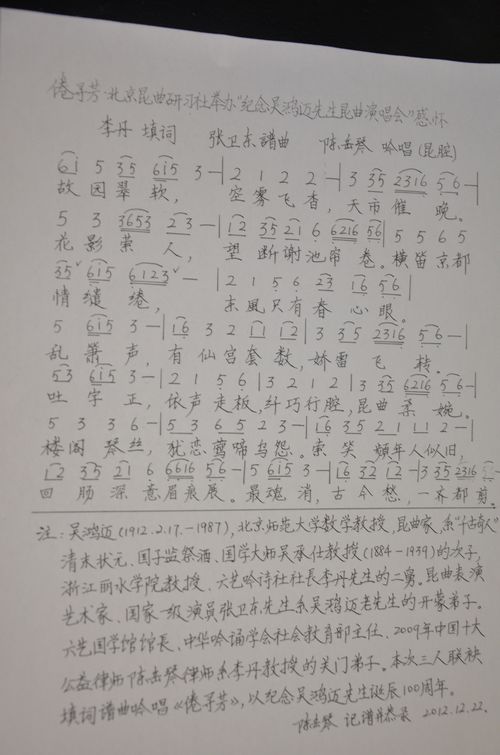 倦寻芳·北京昆曲研习社举办"纪念吴鸿迈先生昆曲演唱会"感怀
李丹 填词 张卫东 谱曲 陈岳琴 吟唱(昆腔)
6i 5 35 6i5 3 -|2 1 2 2 -|3 35 2316 56 -|
故园翠软, 空雾飞杳, 天市催晚。
5 3 3653 23 -|12 35 21 6 6216 56|5 5 6 5
花影萦人, 望断谢池帘卷。横笛京都
35 6i5 6123 -|2 1 5 6 23 16 56|
情缱绻, 东風只有春心眼。
5 6i5 3 -|16 3 2 11 12|3 35 2316 56 -|
乱箫声,有仙宫套数,娇雷飞转。
53 6i5 3 -|2 1 5 6|3 2 1 2|3 35 6216 56 -|
吐字正,依声走板,纤巧行腔,昆曲柔婉。
5 3 3 6 -|5 3 6 5 2 3 -|16 35 2 1 11 2 -|
楼阁琴丝,犹恋莺啼乌怨。索笑 年人似旧,
12 35 21 6 6616 56 -|5 6i5 3 -|16 32 12 -|3 35 2316
回肠深意眉痕展。最魂消,古今愁,一齐都剪。
注:吴鸿迈(1912.2.17.-1987),北京师范大学数学教授,昆曲家,系"千古奇人"
清末状元、国子监祭酒、国学大师吴承仕教授(1884-1939)的次子,
浙江丽水学院教授、六艺吟诗社社长李丹先生的二舅。昆曲表演
艺术家、国家一级演员张卫东先生系吴鸿迈老先生的开蒙弟子。
六艺国学馆馆长、中华吟诵学会社会教育部主任、2009年中国十大
公益律师陈岳琴律师系李丹教授的关门弟子。本次三人联袂
填词谱曲吟唱《倦寻芳》,以纪念吴鸿迈先生诞辰100周年。
陈岳琴 记谱并恭录 2012.12.22.